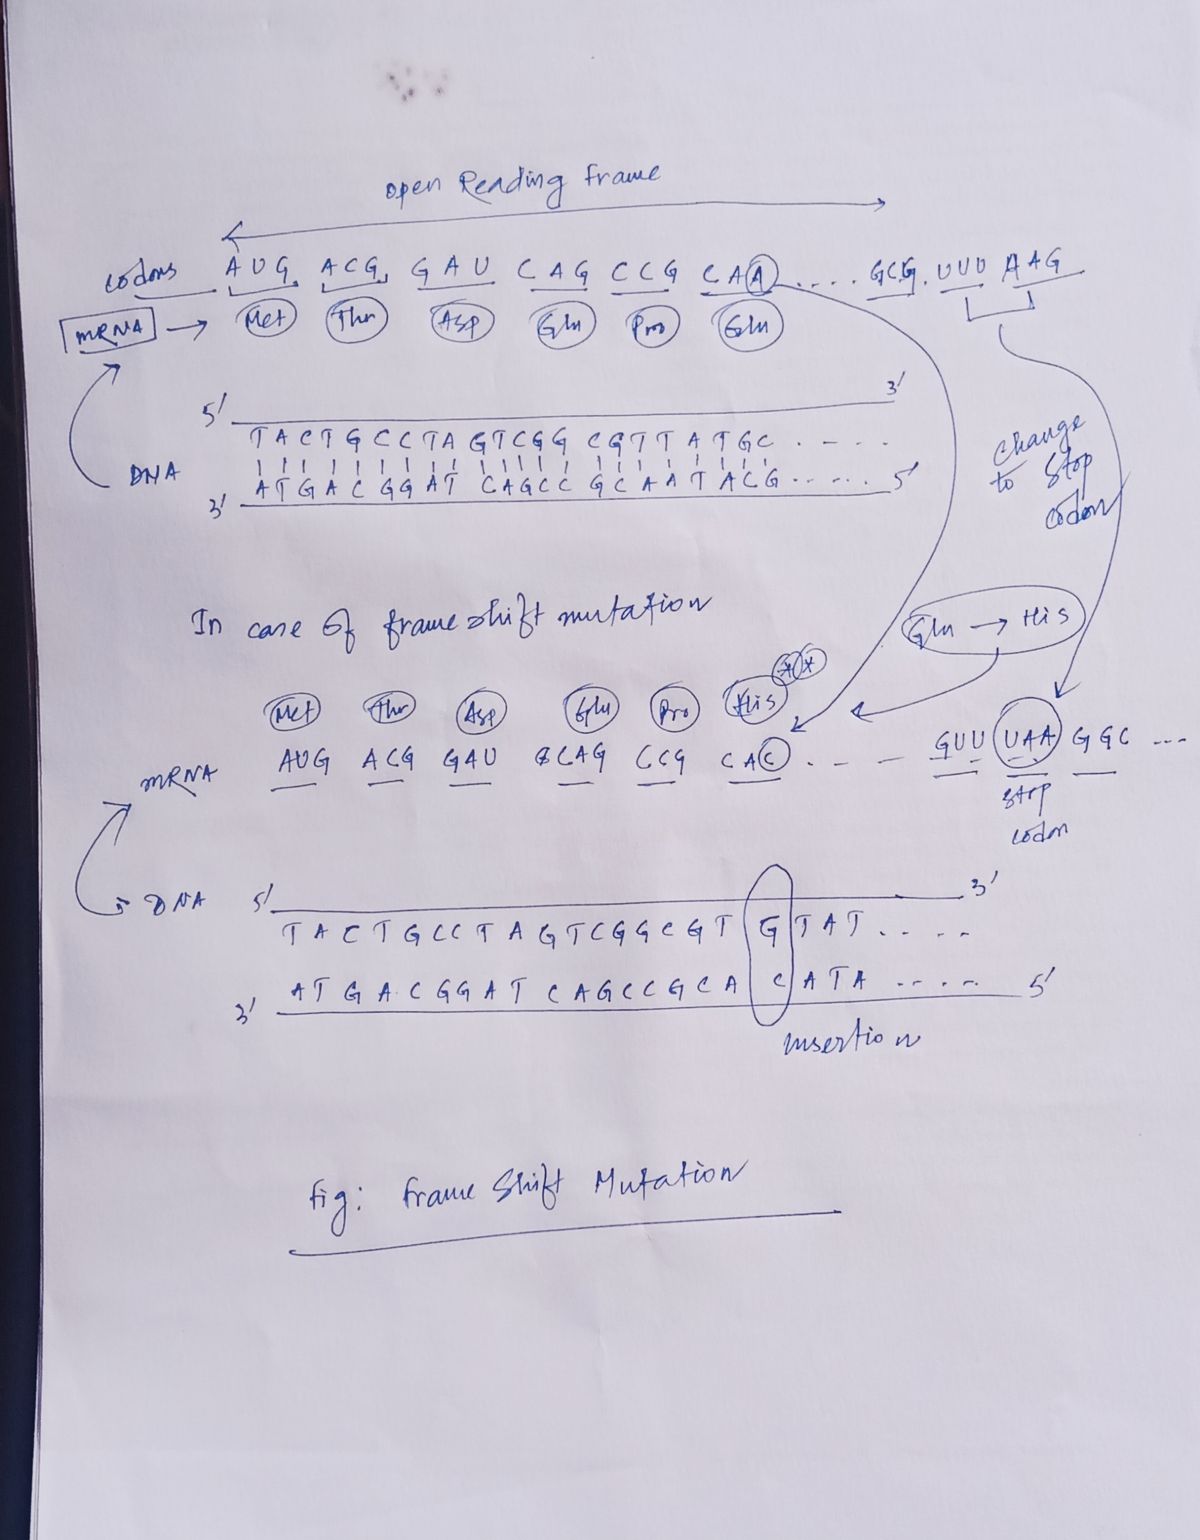 open Reading frame
codons AUG ACG GAU CAG CCG CAA ..... GCG. UUU AAG
mRNA → Met Thr Asp Gln Pro Gln
5' 3'
TACTGCCTA GTCGG CGTT ATGC . - - .
DNA
ATGAC GGAT CAGCC GCAATACG.. - ....
3' 5'
change
to stop
codon
In case of frame shift mutation
Gln → His
Met Thr Asp Gln Pro His **
mRNA AUG ACG GAU CAG CCG CAC . - - - GUU UAA GGC ---
stop
codon
DNA 5' 3'
TACTGCCTAGTCGGCGT G TAT . . - -
ATGACGGATCAGCCGCA C ATA ....
3' 5'
insertion
fig: frame Shift Mutation